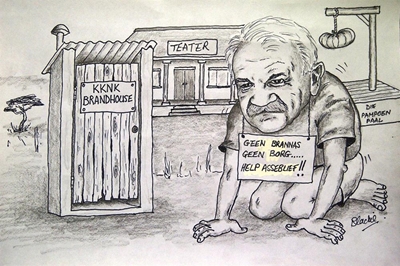 TEATER
KKNK
BRANDHOUSE
DIE
PAMPOEN
PAAL
GEEN BRANNAS
GEEN BORG.....
HELP ASSEBLIEF!!